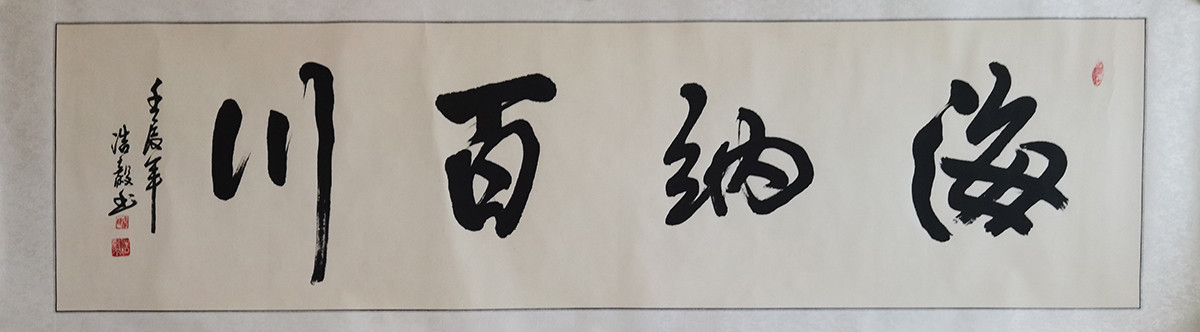 海纳百川
壬辰年
浩毅书